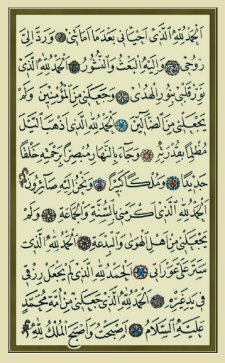 اَلْحَمْدُ لِلّٰهِ الَّذِى اَحْيَانِى بَعْدَمَا اَمَاتَنِى وَرَدَّ اِلَىَّ
رُوحِى وَاِلَيْهِ الْبَعْثُ وَالنُّشُورُ اَلْحَمْدُ لِلّٰهِ الَّذِى
نَوَّرَ قَلْبِى بِنُورِ الْهُدٰى وَجَعَلَنِى مِنَ الْمُؤْمِنِينَ وَلَمْ
يَجْعَلْنِى مِنَ الضَّالِّينَ اَلْحَمْدُ لِلّٰهِ الَّذِى اَذْهَبَ الَّيْلَ
مُظْلِمًا بِقُدْرَتِهِ وَجَاءَ بِالنَّهَارِ مُبْصِرًا بِرَحْمَتِهِ خَلْقًا
جَدِيدًا وَمُلْكًا كَبِيرًا وَنَحْنُ اِلَيْهِ صَاغِرُونَ
اَلْحَمْدُ لِلّٰهِ الَّذِى كَرَّمَنِى بِالسُّنَّةِ وَالْجَمَاعَةِ وَلَمْ
يَجْعَلْنِى مِنْ اَهْلِ الْهَوٰى وَالْبِدْعَةِ اَلْحَمْدُ لِلّٰهِ الَّذِى
سَتَرَ عَلَىَّ عَوْرَاتِى اَلْحَمْدُ لِلّٰهِ الَّذِى لَمْ يَجْعَلْ رِزْقِى
فِى يَدِ غَيْرِهِ اَلْحَمْدُ لِلّٰهِ الَّذِى جَعَلَنِى مِنْ اُمَّةِ مُحَمَّدٍ
عَلَيْهِ السَّلَامُ اَصْبَحْتُ وَاَصْبَحَ الْمُلْكُ لِلّٰهِ